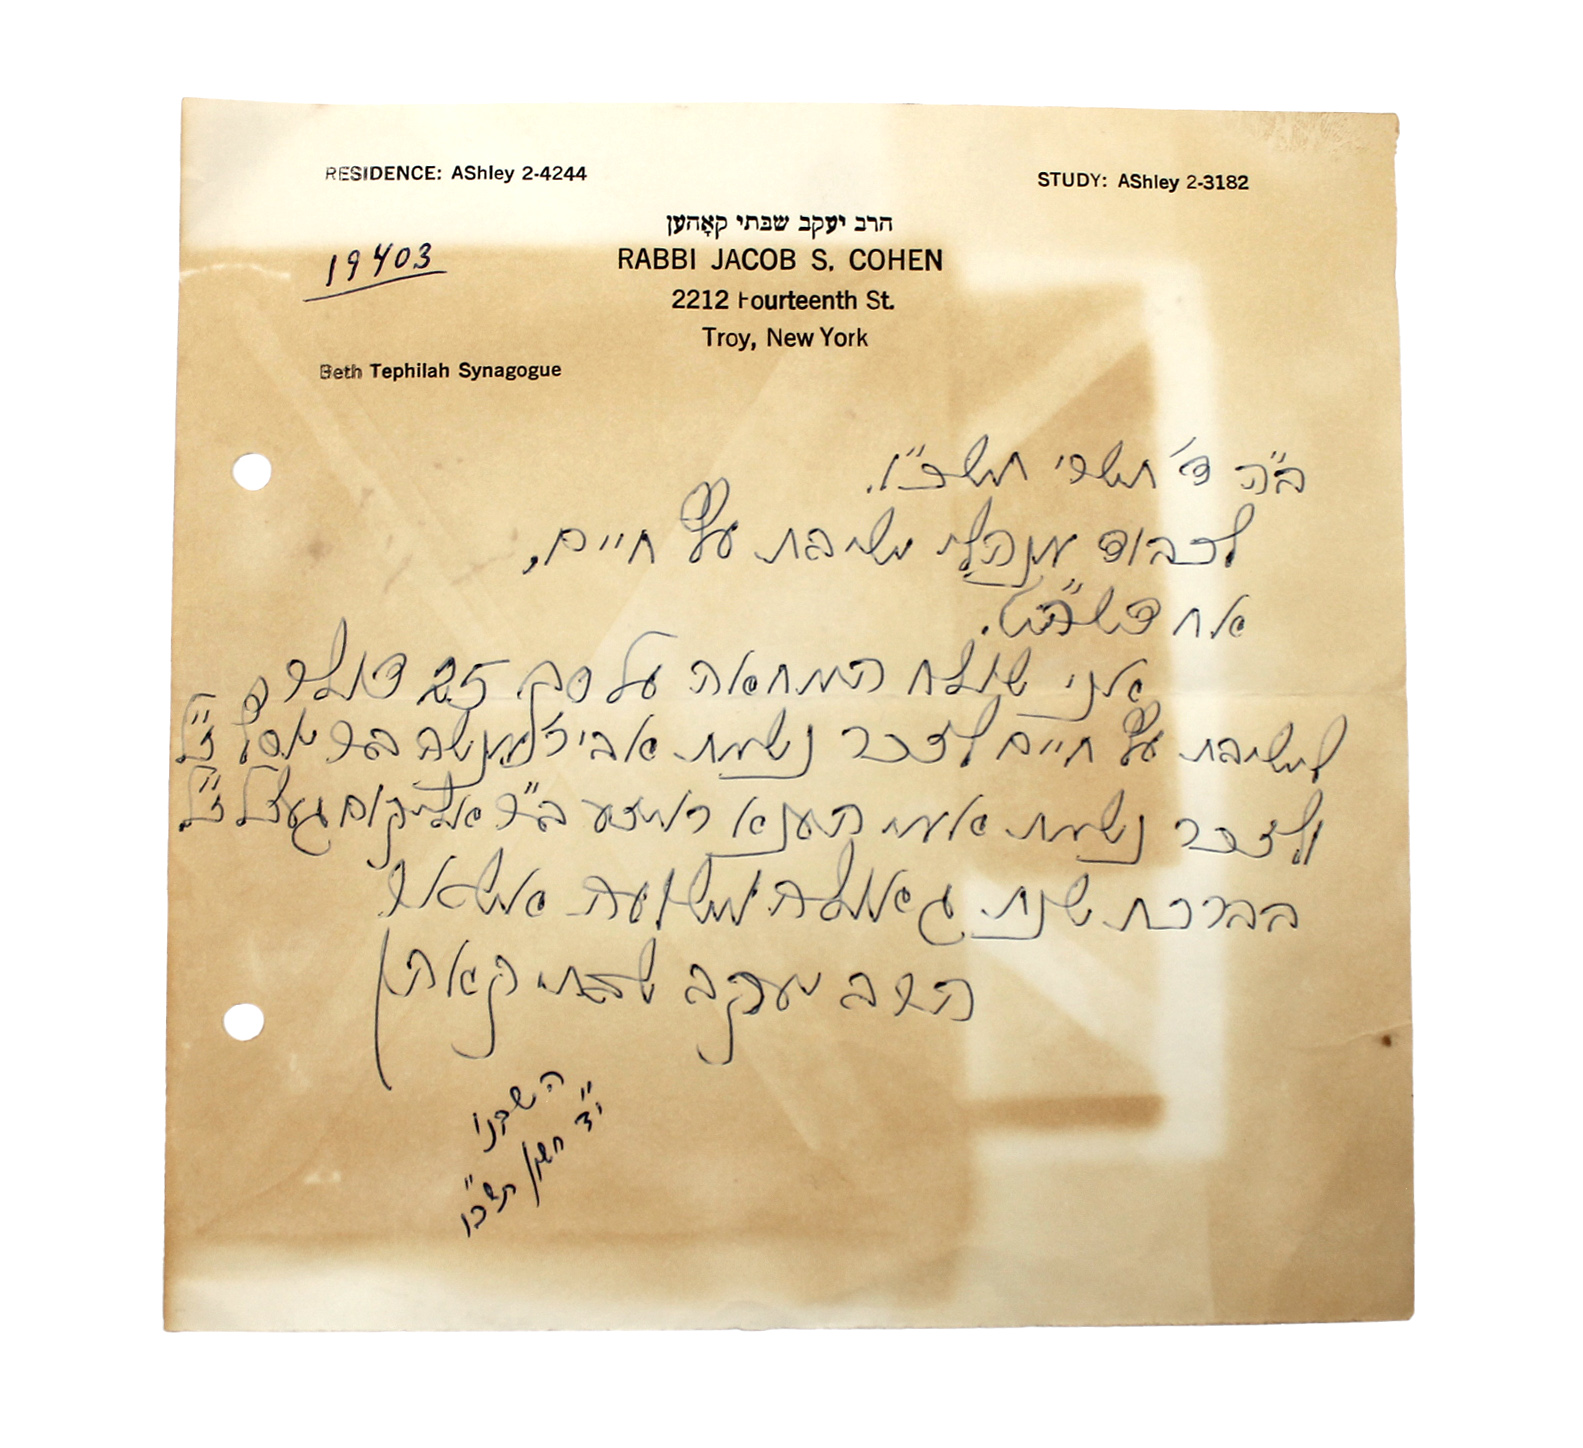 RESIDENCE: AShley 2-4244
STUDY: AShley 2-3182
הרב יעקב שבתי קאָהען
RABBI JACOB S. COHEN
19403
2212 Fourteenth St.
Troy, New York
Beth Tephilah Synagogue
ב"ה ד' תשרי תשכ"ו.
לכבוד מנהלי ישיבת עץ חיים,
אני שולח המחאה על סך 25 דולר
לישיבת עץ חיים לזכר נשמת אבי ז"ל
ולזכר נשמת אמי ב"ר אליקום געצל ז"ל
בברכת שנת גאולה וישועה
הרב יעקב שבתי קאהן
השבנו
י"ד חשון תשכ"ו